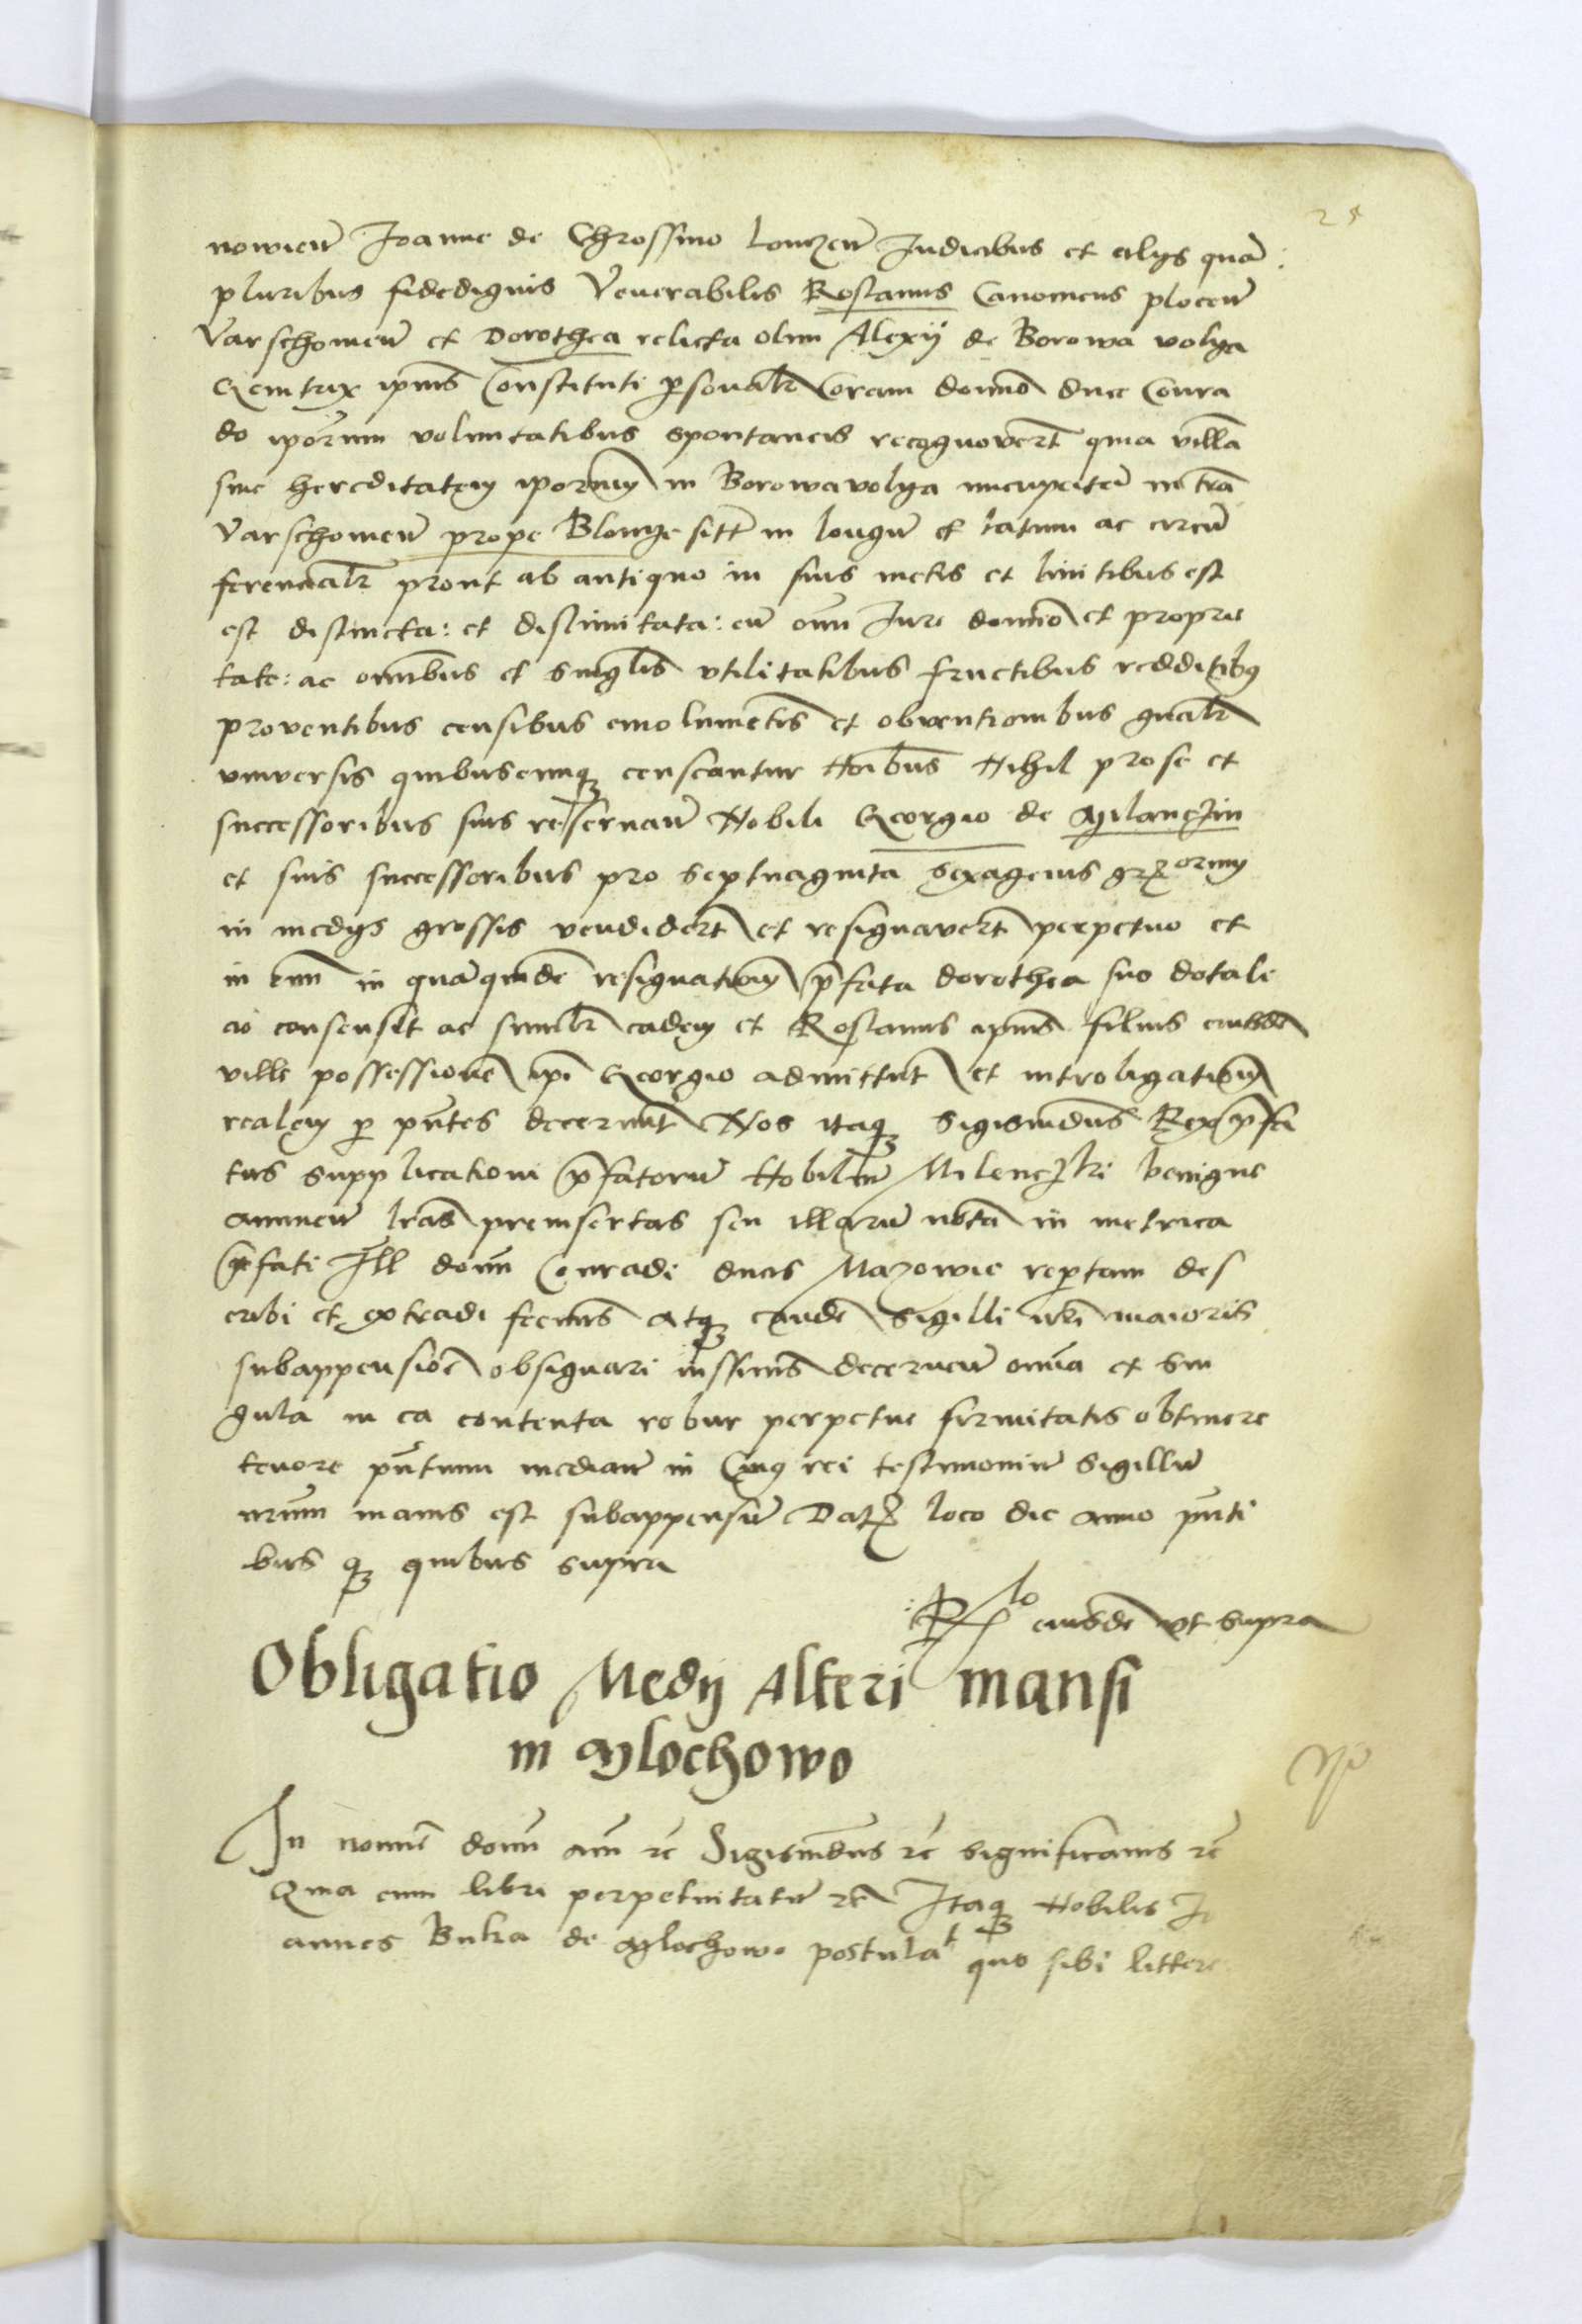 nowien̄ Joanne de Chrossno lonczen̄ Iudicibus et alijs quā
pluribus fidedignis Venerabilis Rostanus Canonicus plocen̄
Varschouien̄ et Dorothea relicta olim Alexij de Borowa volya
Genitrix ipius̄ Constituti p̱sonalr̄ Coram domno̅ duce Conra
do ipor̄um voluntatibus spontaneis recognovert̄ quia villā
siue hereditatem ipor̄um in Borowavolya nuncupatā in tr̄a
Varschouien̄ prope Blonye sitt̄ in longū et latum ac circū
ferencialr̄ pront ab antiquo in suis metis et limitibus est
est distincta: et dislimitata: cū om̄i Iure domnio̅ et proprie
tate: ac omn̄ibus et singlis̄ vtilitatibus fructibus redditibꝫ
proventibus censibus emolumētis et obventionibus gn̄alr̄
vniversis quibuscunqꝫ censeantur Noīb̄us Nihil pro se et
successoribus suis reservan̄ Nobili Georgio de Milanczin
et suis successoribus pro septuaginta sexagenis grorum
in medijs grossis vendidert̄ et resignavert̄ perpetuo et
in eum̄ in quāquidē resignationē p̄fata dorothea suo dotali
cio consensit ac similr̄ eadem et Rostanus ipius̄ filius eiusdē
ville possessionē ip̄i Georgio admittūt et introligationē
realem p̱ pn̄tes decernūt Nos itaqꝫ Sigismūdus Rex p̄fa
tus supplicationi p̄fatorū Nobiliū Milenczki benigne
annuen̄ lr̄as preinsertas seu illarū notā in metrica
p̄fati Ill domn̄ Conradi ducis Mazowie repertam des
cribi et extradi fecimus̄ Atqꝫ eandē Sigilli nr̄i maioris
subappensioē obsignari iussimus̄ decernen̄ omn̄ia et sin
gula in ea contenta robur perpetue firmitatis obtinere
tenore pn̄tium median̄ in Cuiꝫ rei testimoniū Sigillū
nrūm maius est subappensū Datꝭ loco die anno pn̄ti
bus qꝫ quibus supra
Rlo eiusdē ut supra
Obligatio Medij Alteri mansi
in Mlochowo
In nomīe domn̄ am̄ rc̄ Sigismūdus rc̄ significamus rc̄
Quia cum libri perpetuitatū rc̄ Itaqꝫ Nobilis Jo
annes Buka de Mlochowo postulat quo sibi littere